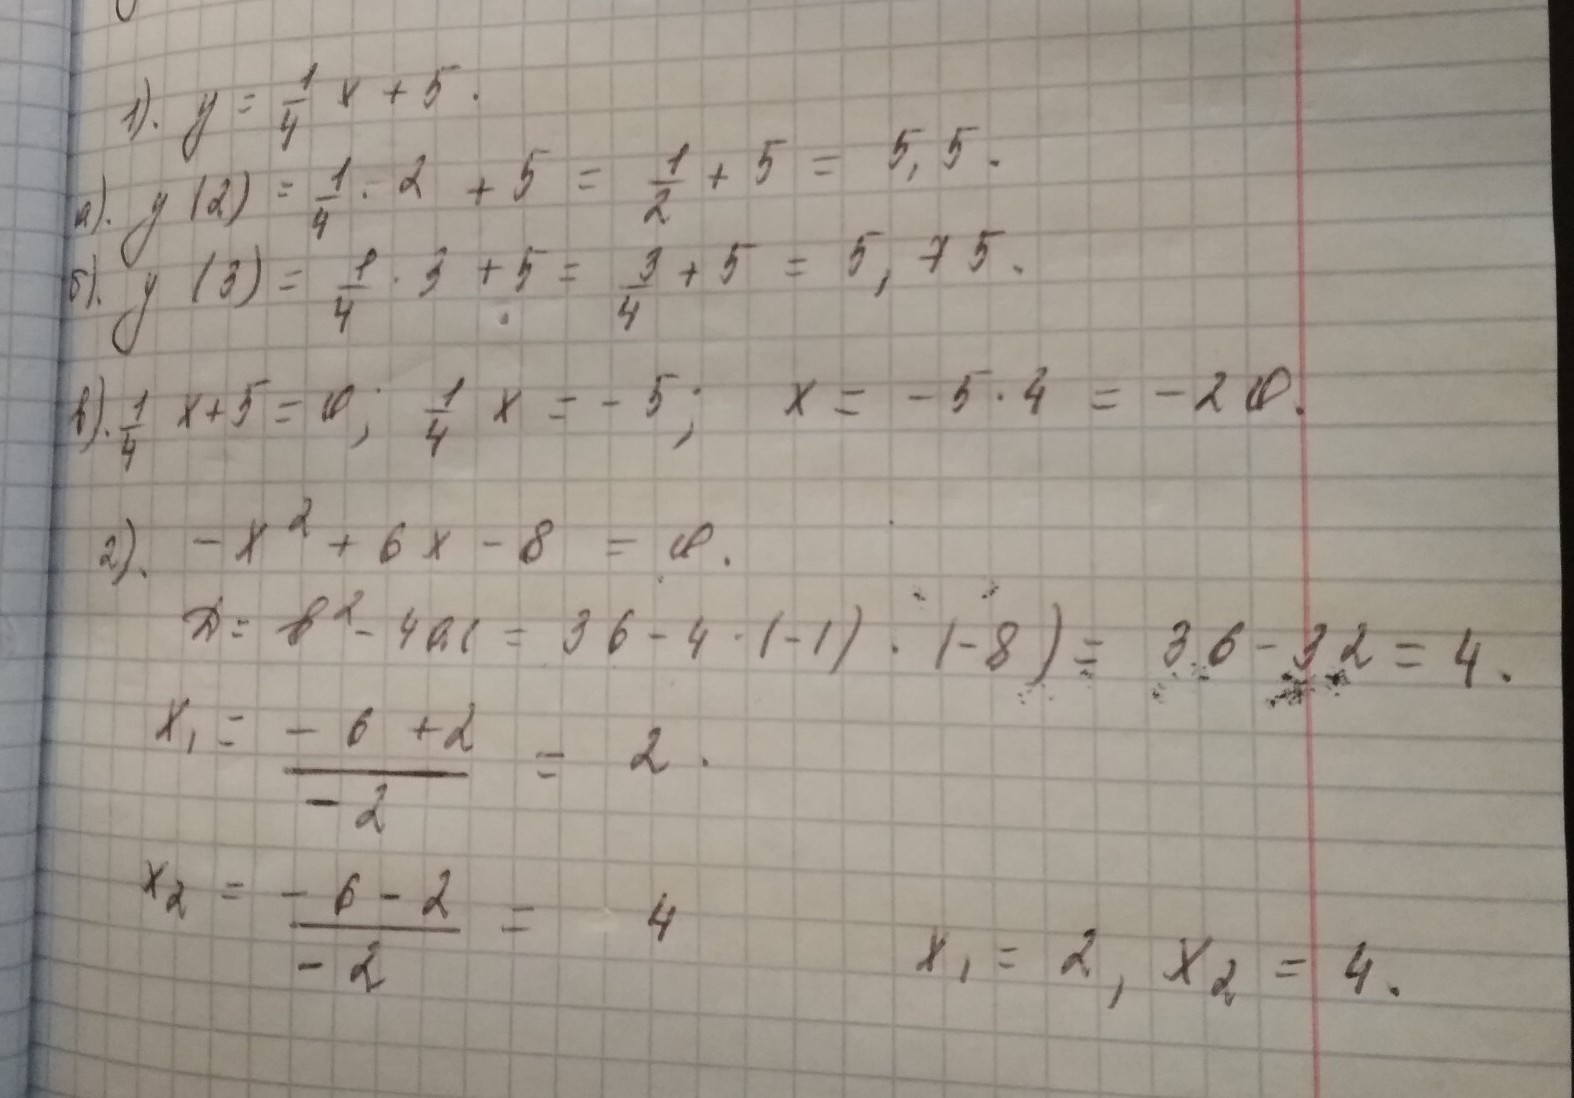 1). y = 1/4 x + 5.
а). y (2) = 1/4 · 2 + 5 = 1/2 + 5 = 5,5.
б). y (3) = 1/4 · 3 + 5 = 3/4 + 5 = 5,75.
в). 1/4 x + 5 = 0; 1/4 x = - 5; x = - 5 · 4 = - 20.
2). - x² + 6x - 8 = 0.
D = b² - 4ac = 36 - 4 · (-1) · (-8) = 36 - 32 = 4.
x₁ = (- 6 + 2)/(- 2) = 2.
x₂ = (- 6 - 2)/(- 2) = 4
x₁ = 2, x₂ = 4.